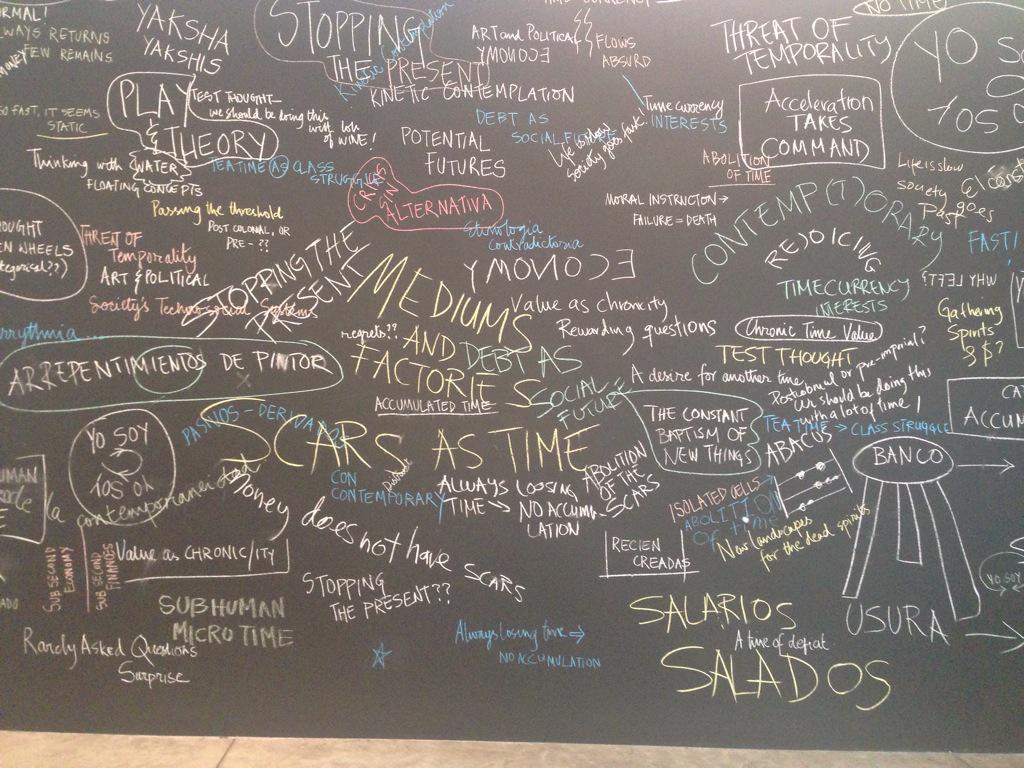 RMAL!
WAYS RETURNS
FEW REMAINS
YAKSHA
YAKSHIS
STOPPING
THE PRESENT
KINETIC CONTEMPLATION
Kinetic Contemplation
ART and POLITICAL
YMONOƆƎ
FLOWS
ABSURD
THREAT OF
TEMPORALITY
NO TIME
YO S
YO SO
SO FAST, IT SEEMS
STATIC
PLAY
&
THEORY
TEST THOUGHT
we should be doing this
with lots
of WINE!
POTENTIAL
FUTURES
DEBT AS
SOCIAL FUTURE
Time currency
INTERESTS
Acceleration
TAKES
COMMAND
Thinking with WATER
FLOATING CONCEPTS
TEATIME AS CLASS
STRUGGLE
CRISIS
ALTERNATIVA
ABOLITION
OF TIME
Life is slow
society goes
Fast
Passing the threshold
POST COLONIAL, OR
PRE - ??
MORAL INSTRUCTION →
FAILURE = DEATH
CONTEMP(T)ORARY
REJOICING
FAST!
OUGHT
EN WHEELS
tegorical??)
THREAT OF
Temporality
ART & POLITICAL
Society's Techno social Systems
STOPPING THE
PRESENT
Etimologia
contradictoria
YMONOƆƎ
WHY LEFT??
TIMECURRENCY
INTERESTS
Gathering
Spirits
$ $?
MEDIUMS
AND
FACTORIES
Value as chronicity
Rewarding questions
Chronic Time Value
rrythmia...
regrets??
DEBT AS
SOCIAL
FUTURE
TEST THOUGHT
ARREPENTIMIENTOS DE PINTOR
X
ACCUMULATED TIME
A desire for another time
Postcolonial or pre-imperial?
We should be doing this
with a lot of time!
TEA TIME → CLASS STRUGGLE
CA
ACCUM
YO SOY
YO SOY
SCARS AS TIME
THE CONSTANT
BAPTISM OF
NEW THINGS
ABACUS
BANCO
CON
CONTEMPORARY
ALWAYS LOOSING
TIME → NO ACCUMU
LATION
ABOLITION
OF THE
SCARS
ISOLATED CELLS →
ABOLITION
OF time
New landscapes
for the dead spirits
la contemporaneidad
Money does not have SCARS
SUB SECOND
ECONOMY
SUB SECOND
FINANCES
Value as CHRONIC/ITY
RECIEN
CREADAS
YO SOY
STOPPING
THE PRESENT??
SUBHUMAN
MICRO TIME
SALARIOS
A time of defeat
SALADOS
USURA
Rarely Asked Questions
Surprise
Always losing time →
NO ACCUMULATION